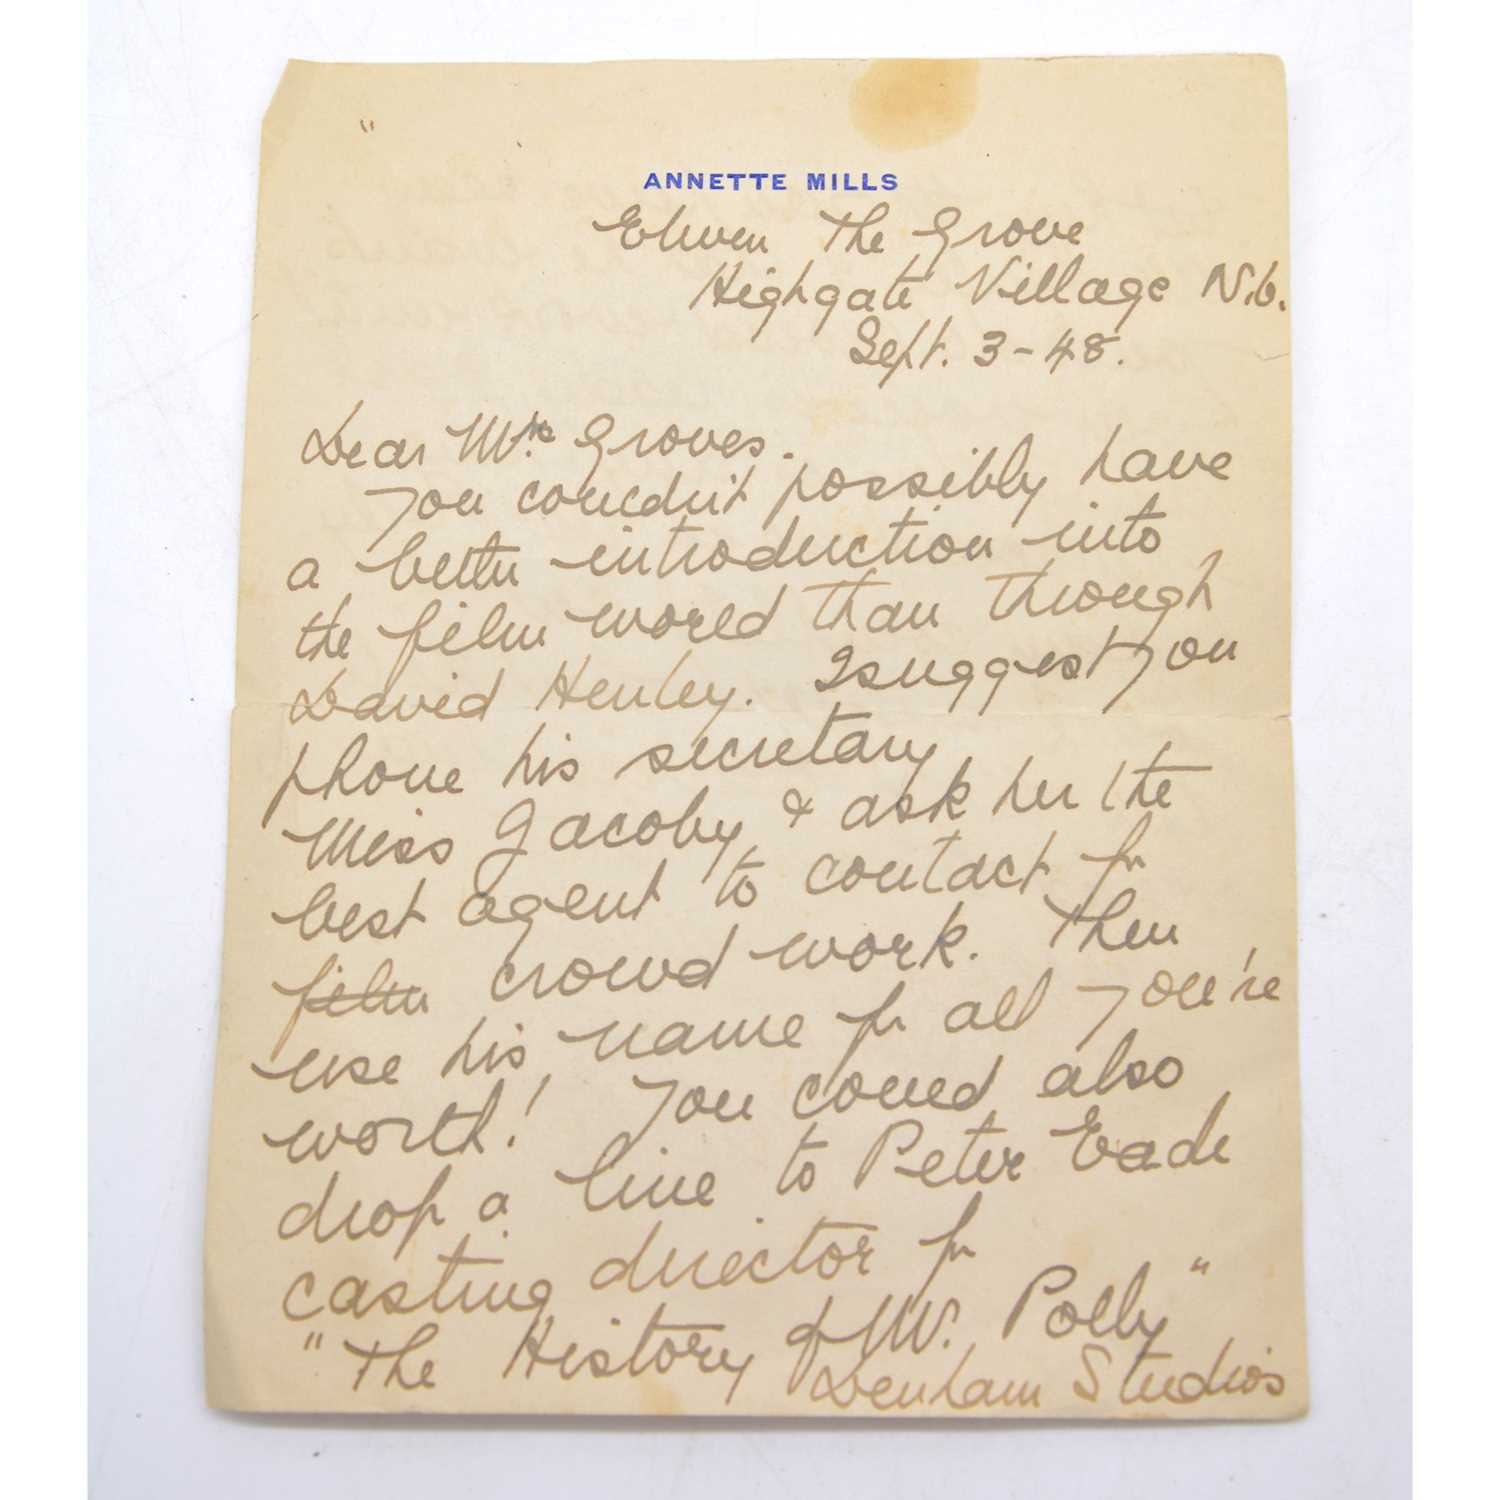 ANNETTE MILLS
The Grove
Highgate Village N.6.
Sept. 3-48.
Dear Mrs Groves.
You couldn't possibly have
a better introduction into
the film world than through
David Henley. I suggest you
phone his secretary
Miss Jacoby, & ask her the
best agent to contact for
film crowd work. Then
use his name for all you're
worth! You could also
drop a line to Peter Eade
casting director for
"The History of Mr. Polly"
Denham Studios